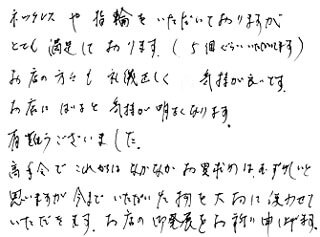 ネックレス や 指輪をいただいておりますが
とても 満足して おります。( 5個ぐらいいただいてます)
お店の方々も 礼儀正しく 気持が良いです。
お店に 気持が明るくなります。
有難うございました。
高年令で これからは なかなか お買求めは むずかしいと
思いますが 今まで いただいた物を大切に 使わせて
いただきます。お店の御発展をお祈り申し上げます。